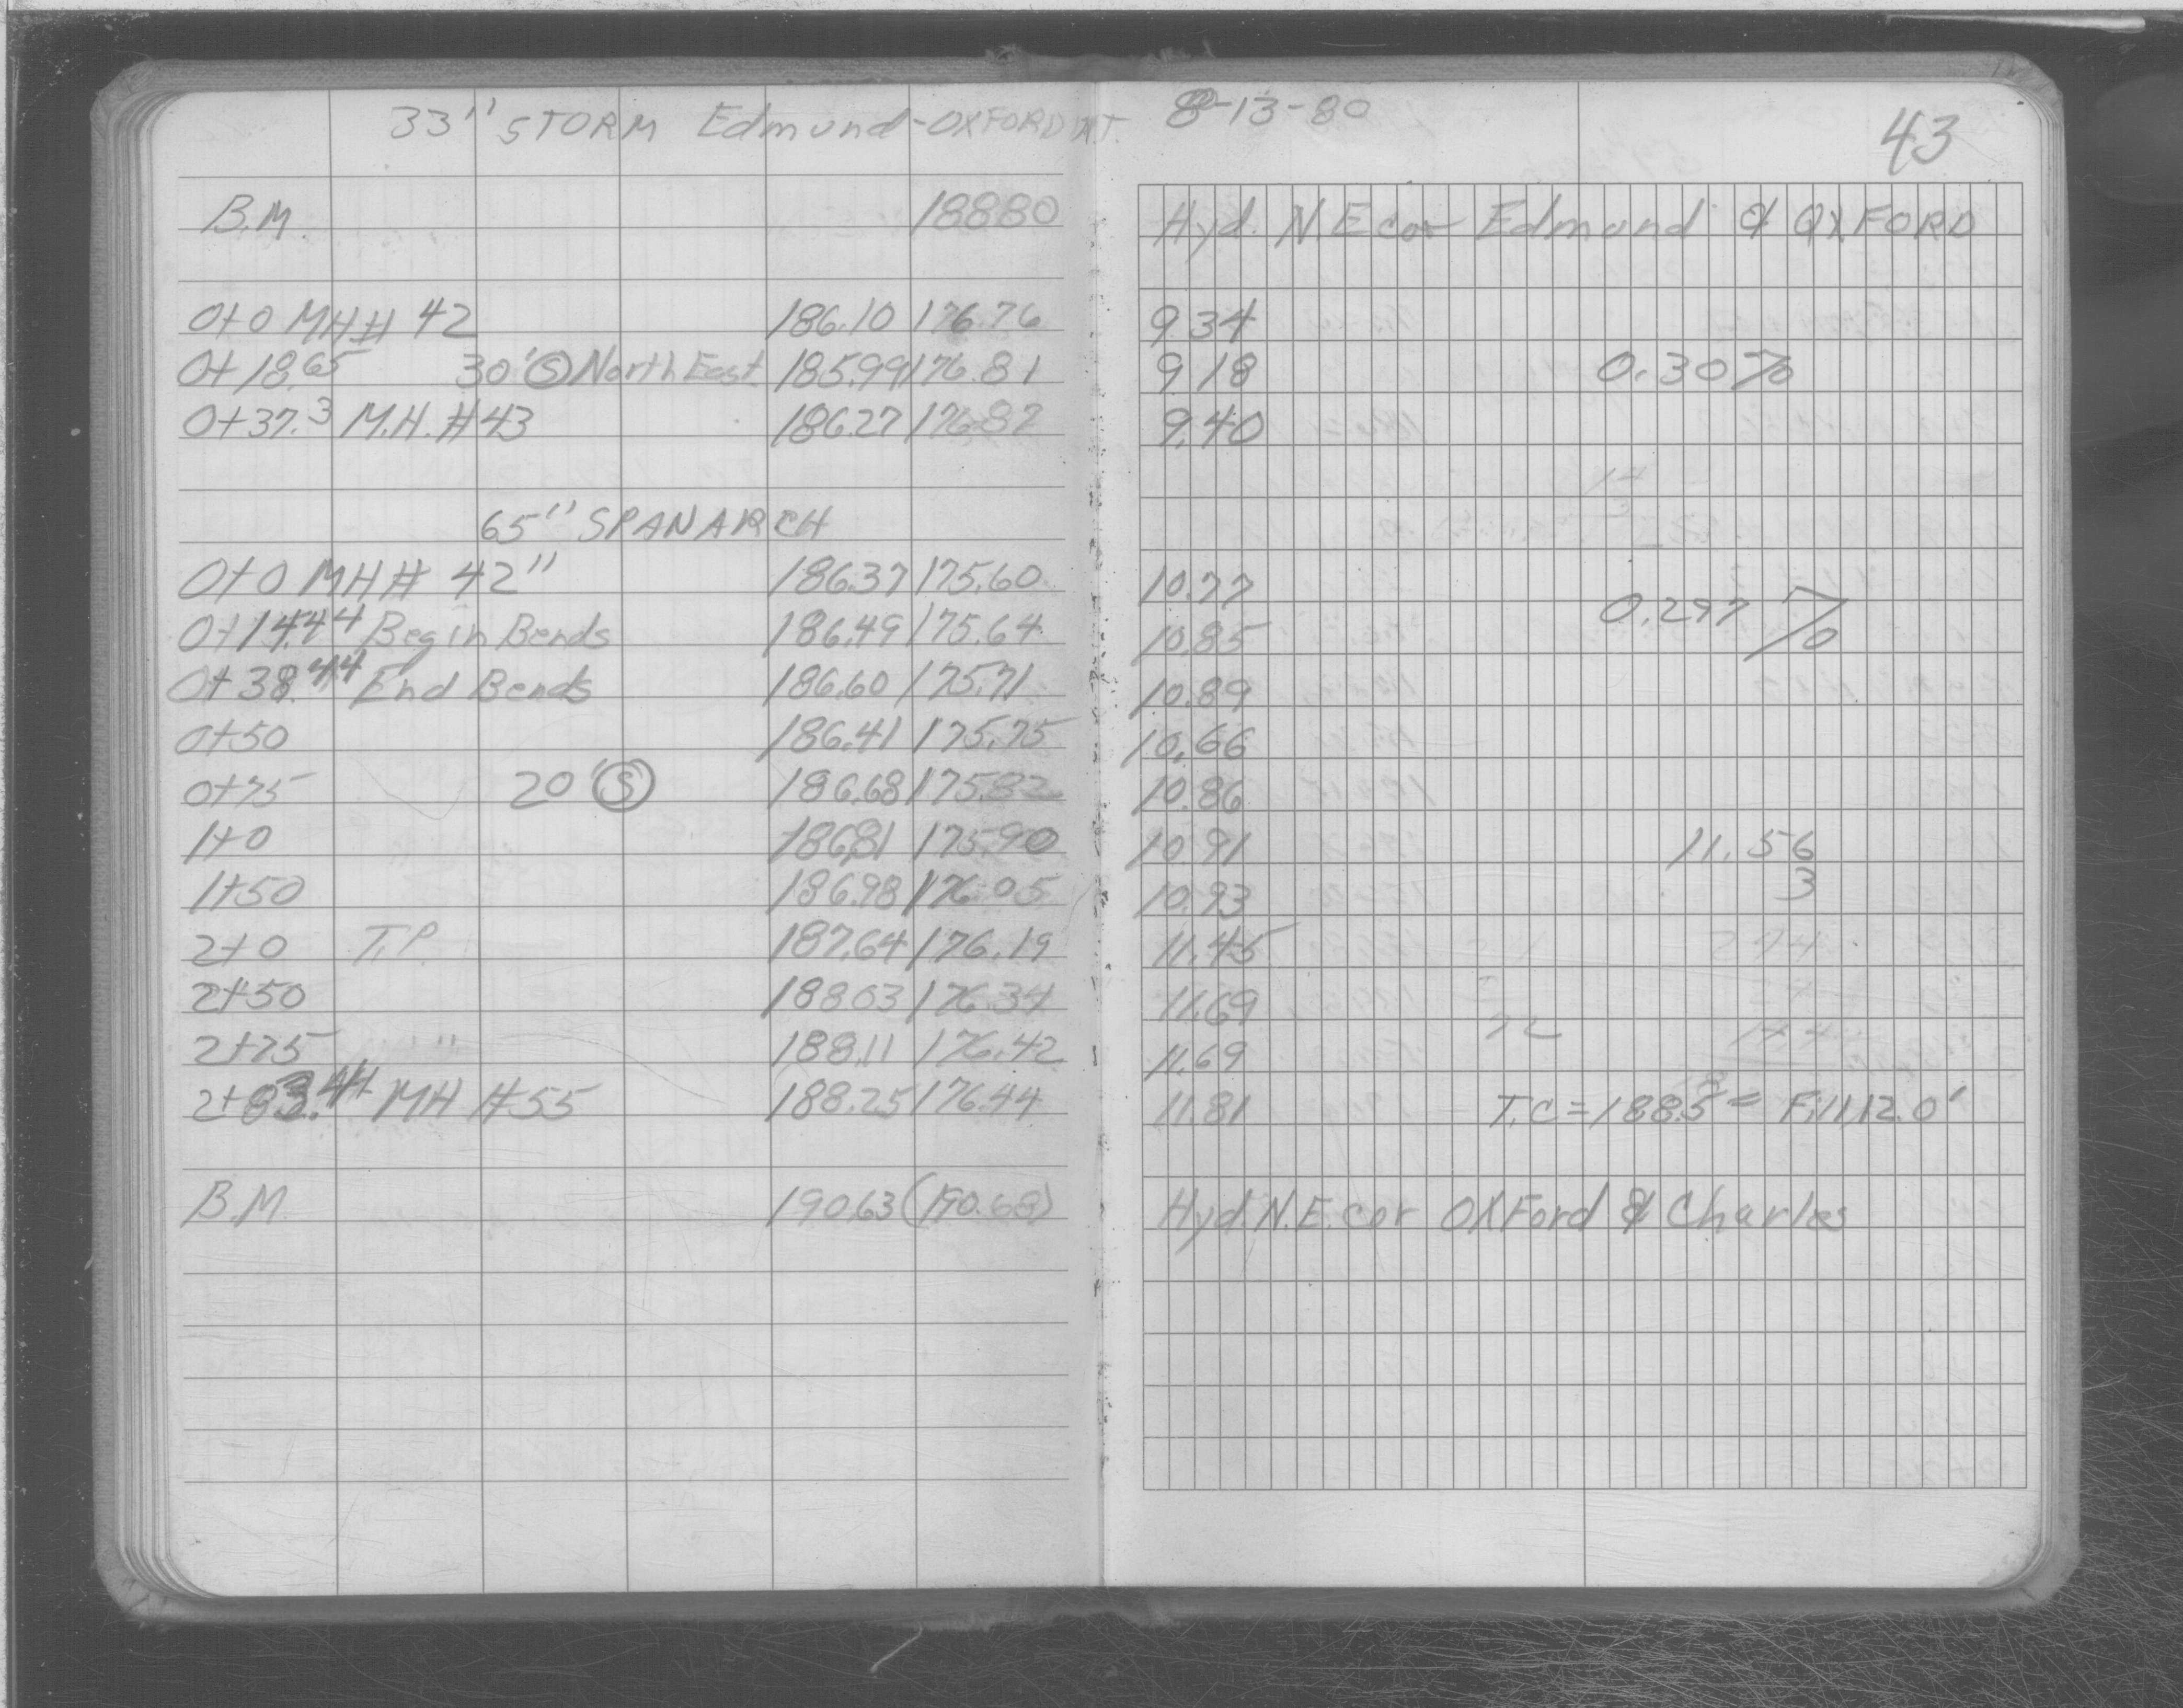 33" STORM Edmund-OXFORD INT. 8-13-80
43
B.M. 188.80 Hyd. N.E cor Edmund & OXFORD
0+0 MH# 42 186.10 176.76 9.34
0+18.65 30' Ⓢ North East 185.99 176.81 9.18 0.30%
0+37.3 M.H. #43 186.27 176.87 9.40
65" SPAN ARCH
0+0 MH# 42" 186.37 175.60 10.77
0+14.44 Begin Bends 186.49 175.64 10.85 0.297%
0+38.44 End Bends 186.60 175.71 10.89
0+50 186.41 175.75 10.66
0+75 20' Ⓢ 186.68 175.82 10.86
1+0 186.81 175.90 10.91 11.56
1+50 186.98 176.05 10.93 3
2+0 T.P. 187.64 176.19 11.45
2+50 188.03 176.34 11.69
2+75 188.11 176.42 11.69
2+83.44 MH #55 188.25 176.44 11.81 T.C=188.5= Fill 12.0'
B.M. 190.63 (190.68) Hyd N.E. cor OXFord & Charles